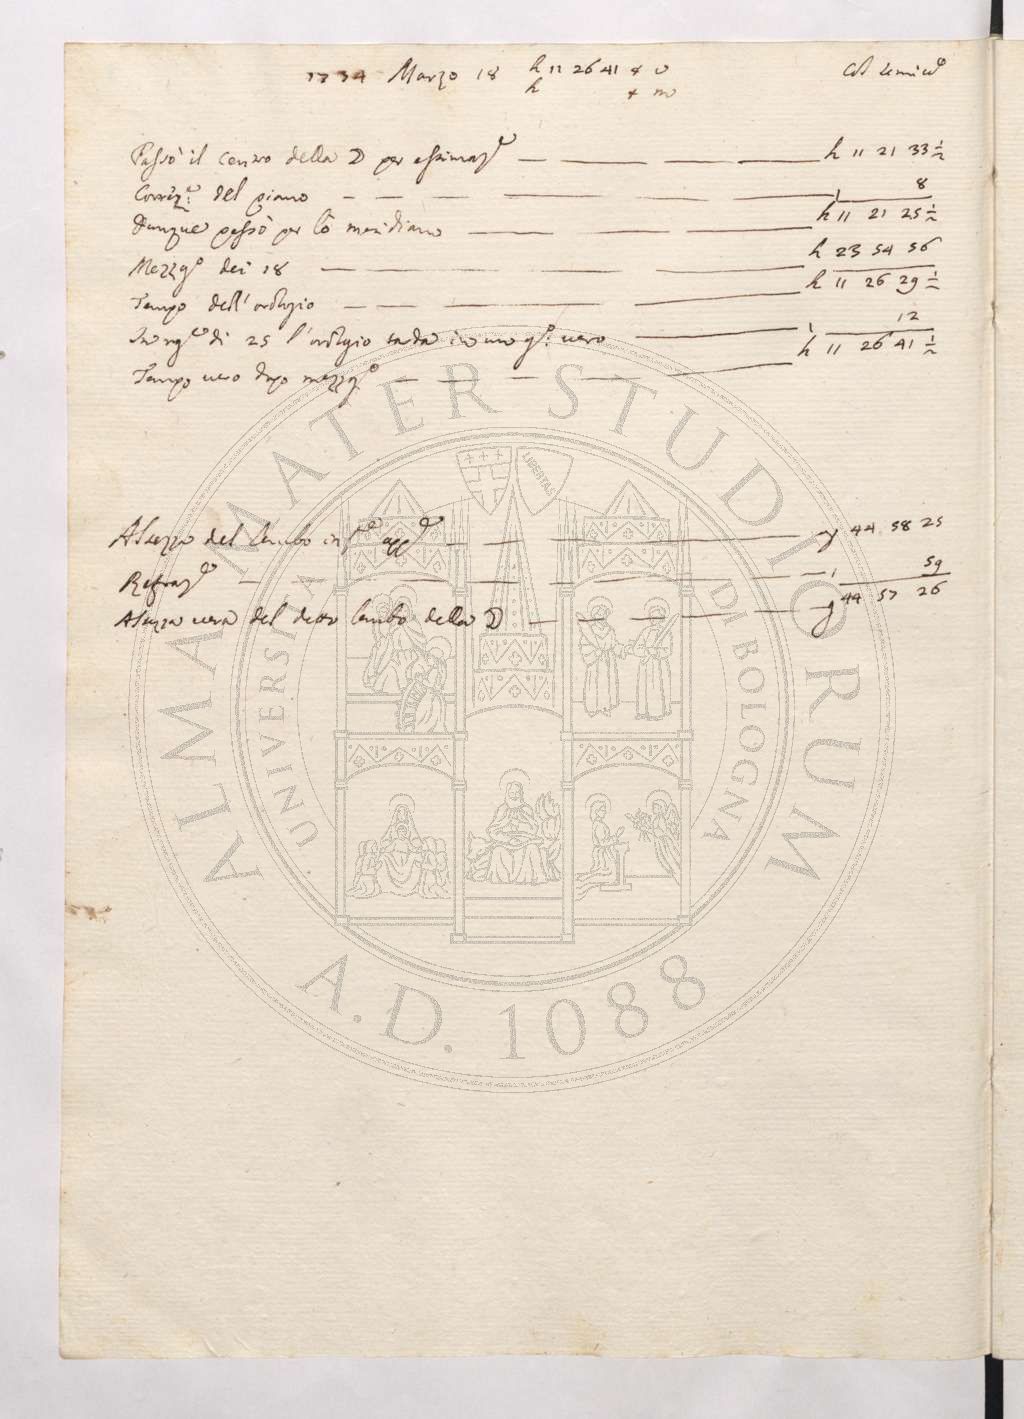 1734 Marzo 18 h 11 26 41 + v Col semic.º
h + m
Passò il centro della ☽ per estimaz.e h 11 21 33 ½
Correz.e del piano 8
Dunque passò per lo meridiano h 11 21 25 ½
Mezzg.º dei 18 h 23 54 56
Tempo dell'orologio h 11 26 29 ½
In di 25 l'orologio tarda in uno g.º vero 12
Tempo vero dopo mezzg.º h 11 26 41 ½
Altezza del lembo inf.e app.e g 44 58 25
Refraz.e 59
Altezza vera del detto lembo della ☽ g 44 57 26
ALMA MATER STUDIORUM
UNIVERSITÀ DI BOLOGNA
LIBERTAS
A.D. 1088